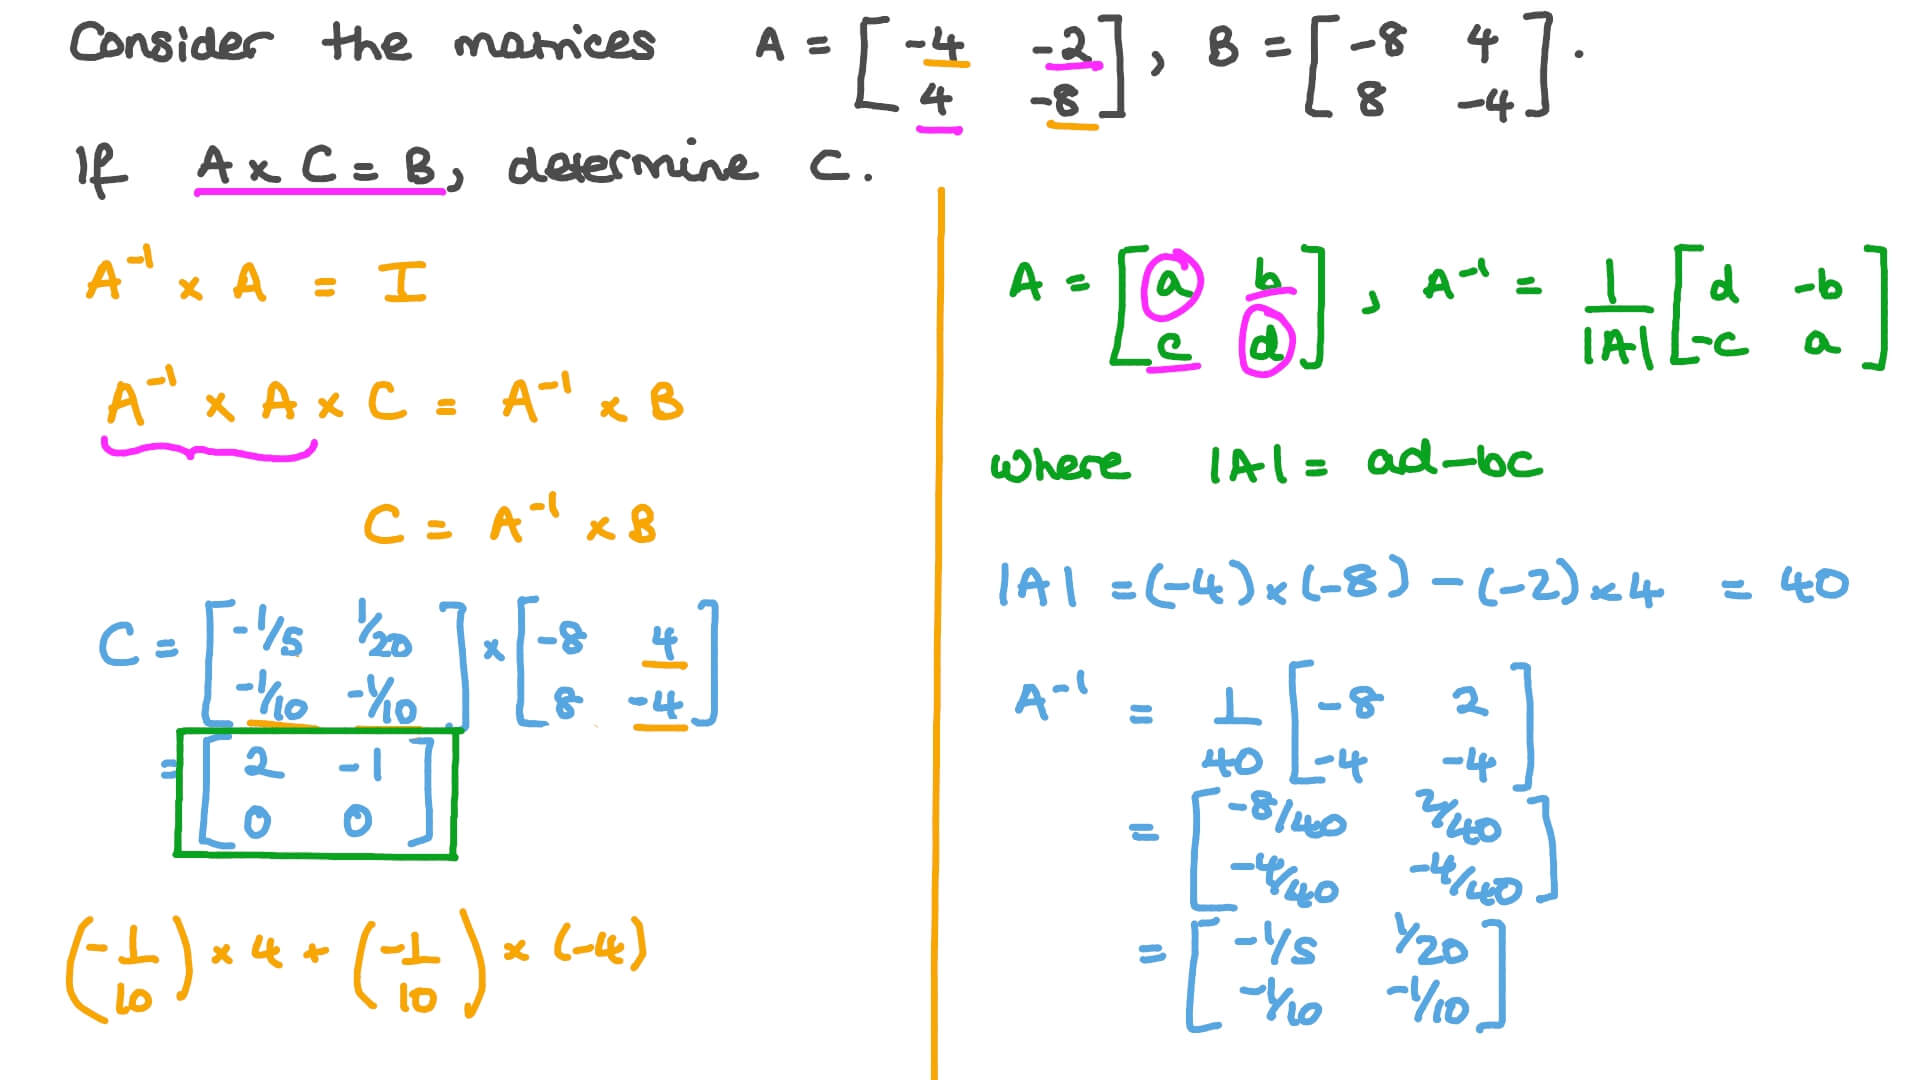 Consider the matrices A = [-4 -2; 4 -8], B = [-8 4; 8 -4].
If A × C = B, determine C.
A⁻¹ × A = I
A⁻¹ × A × C = A⁻¹ × B
C = A⁻¹ × B
C = [-1/5 1/20; -1/10 -1/10] × [-8 4; 8 -4]
= [2 -1; 0 0]
(-1/10) × 4 + (-1/10) × (-4)
A = [a b; c d], A⁻¹ = 1/|A| [d -b; -c a]
where |A| = ad-bc
|A| = (-4) × (-8) - (-2) × 4 = 40
A⁻¹ = 1/40 [-8 2; -4 -4]
= [-8/40 2/40; -4/40 -4/40]
= [-1/5 1/20; -1/10 -1/10]